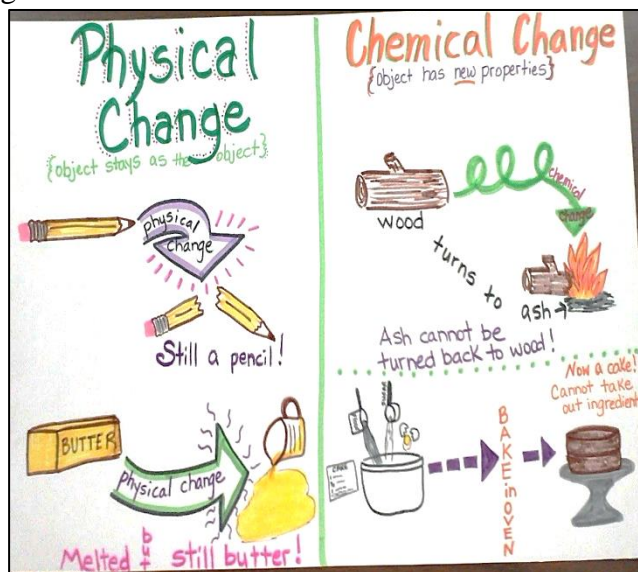 Physical
Change
{object stays as the object}
physical
change
Still a pencil!
BUTTER
physical change
Melted but still butter!
Chemical Change
{Object has new properties}
wood
chemical
change
turns to
ash
Ash cannot be
turned back to wood!
CAKE
BAKE in OVEN
Now a cake!
Cannot take
out ingredient